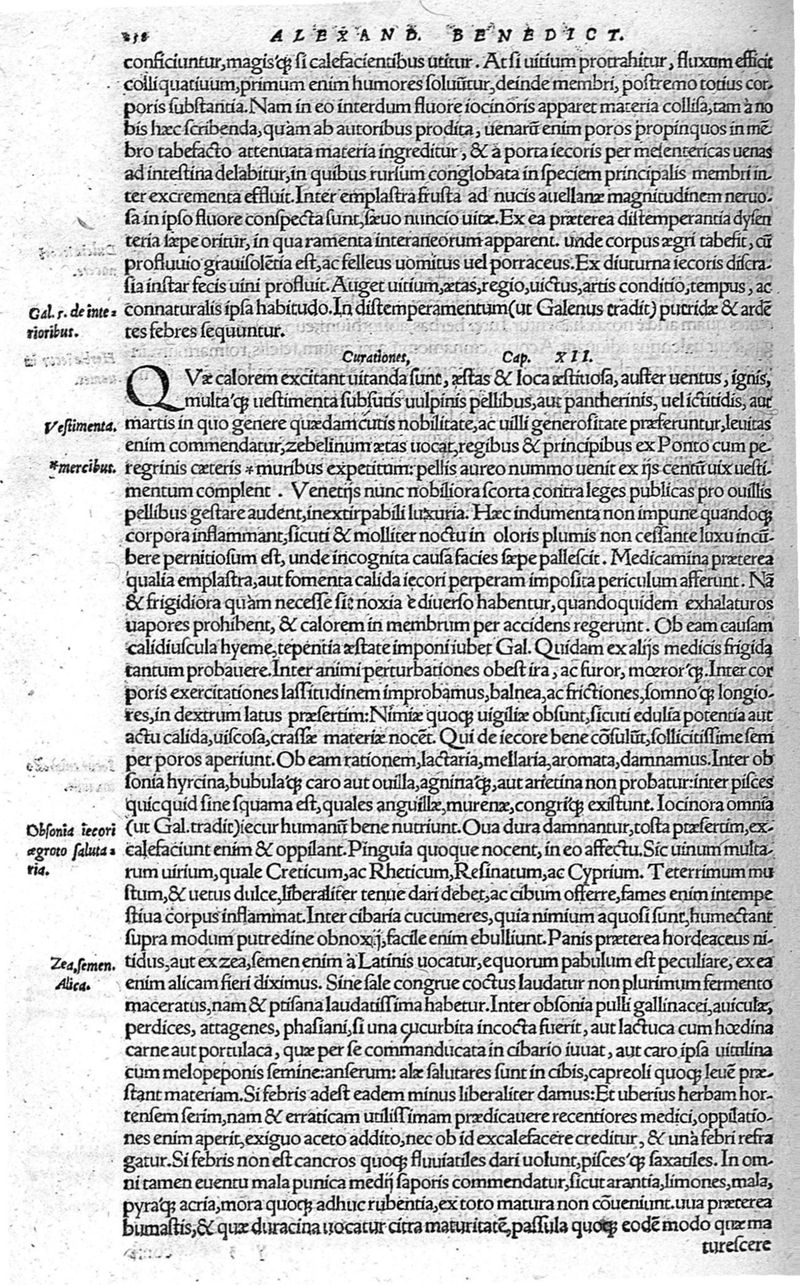 258 ALEXAND. BENEDICT.
conficiuntur, magisq́ꝫ si calefacientibus utitur. At si uitium protrahitur, fluxum efficit
colliquatiuum, primum enim humores soluũtur, deinde membri, postremo totius cor-
poris substantia. Nam in eo interdum fluore iocinoris apparet materia collisa, tam à no
bis hæc scribenda, quàm ab autoribus prodita, uenarũ enim poros propinquos in mẽ-
bro tabefacto attenuata materia ingreditur, & à porta iecoris per mesentericas uenas
ad intestina delabitur, in quibus rursum conglobata in speciem principalis membri in-
ter excrementa effluit. Inter emplastra frusta ad nucis auellanæ magnitudinem neruo-
sa in ipso fluore conspecta sunt, sæuo nuncio uitæ. Ex ea præterea distemperantia dysen
teria sæpe oritur, in qua ramenta interaneorum apparent. unde corpus ægri tabesit, cũ
profluuio grauisolẽtia est, ac felleus uomitus uel porraceus. Ex diuturna iecoris discra-
sia instar fecis uini profluit. Auget uitium, ætas, regio, uictus, artis conditio, tempus, ac
Gal. 5. de inte-
rioribus.
connaturalis ipsa habitudo. In distemperamentum (ut Galenus tradit) putridæ & ardẽ
tes febres sequuntur.
Curationes, Cap. XII.
QVæ calorem excitant uitanda sunt, æstas & loca æstiuosa, auster uentus, ignis,
multa'q́ꝫ uestimenta subsutis uulpinis pellibus, aut pantherinis, uel ictitidis, aut
Vestimenta.
martis in quo genere quædam cutis nobilitate, ac uilli generositate præferuntur, leuitas
enim commendatur, zebelinum ætas uocat, regibus & principibus ex Ponto cum pe-
*mercibus.
regrinis cæteris *muribus expetitum: pellis aureo nummo uenit ex ijs centũ uix uesti-
mentum complent. Venetijs nunc nobiliora scorta contra leges publicas pro ouillis
pellibus gestare audent, inextirpabili luxuria. Hæc indumenta non impune quandoq́ꝫ
corpora inflammant, sicuti & molliter noctu in oloris plumis non cessante luxu incũ-
bere pernitiosum est, unde incognita causa facies sæpe pallescit. Medicamina præterea
qualia emplastra, aut fomenta calida iecori perperam imposita periculum afferunt. Nã
& frigidiora quàm necesse sit noxia è diuerso habentur, quandoquidem exhalaturos
uapores prohibent, & calorem in membrum per accidens regerunt. Ob eam causam
calidiuscula hyeme, tepentia æstate imponi iubet Gal. Quidam ex alijs medicis frigida
tantum probauere. Inter animi perturbationes obest ira, ac furor, mœror'q́ꝫ. Inter cor
poris exercitationes lassitudinem improbamus, balnea, ac frictiones, somno'q́ꝫ longio-
res, in dextrum latus præsertim: Nimiæ quoq́ꝫ uigiliæ obsunt, sicuti edulia potentia aut
actu calida, uiscosa, crassæ materiæ nocẽt. Qui de iecore bene cõsulũt, sollicitissime sem
per poros aperiunt. Ob eam rationem, lactaria, mellaria, aromata, damnamus. Inter ob
sonia hyrcina, bubula'q́ꝫ caro aut ouilla, agnina'q́ꝫ, aut arietina non probatur: inter pisces
quicquid sine squama est, quales anguillæ, murenæ, congri'q́ꝫ existunt. Iocinora omnia
Obsonia iecori
ægroto saluta-
ria.
(ut Gal. tradit) iecur humanũ bene nutriunt. Oua dura damnantur, tosta præsertim, ex-
calefaciunt enim & oppilant. Pinguia quoque nocent, in eo affectu. Sic uinum multa-
rum uirium, quale Creticum, ac Rheticum, Resinatum, ac Cyprium. Teterrimum mu
stum, & uetus dulce, liberaliter tenue dari debet, ac cibum offerre, fames enim intempe
stiua corpus inflammat. Inter cibaria cucumeres, quia nimium aquosi sunt, humectant
supra modum putredine obnoxij, facile enim ebulliunt. Panis præterea hordeaceus ni-
Zea, semen.
Alica.
tidus, aut ex zea, semen enim à Latinis uocatur, equorum pabulum est peculiare, ex ea
enim alicam fieri diximus. Sine sale congrue coctus laudatur non plurimum fermento
maceratus, nam & ptisana laudatissima habetur. Inter obsonia pulli gallinacei, auiculæ,
perdices, attagenes, phasiani, si una cucurbita incocta fuerit, aut lactuca cum hœdina
carne aut portulaca, quæ per se commanducata in cibario iuuat, aut caro ipsa uitulina
cum melopeponis semine: anserum: alæ salutares sunt in cibis, capreoli quoq́ꝫ leuẽ præ-
stant materiam. Si febris adest eadem minus liberaliter damus: Et uberius herbam hor-
tensem serim, nam & erraticam utilissimam prædicauere recentiores medici, oppilatio-
nes enim aperit, exiguo aceto addito, nec ob id excalefacere creditur, & unà febri refra
gatur. Si febris non est cancros quoq́ꝫ fluuiatiles dari uolunt, pisces'q́ꝫ saxatiles. In om-
ni tamen euentu mala punica medij saporis commendatur, sicut arantia, limones, mala,
pyra'q́ꝫ acria, mora quoq́ꝫ adhuc rubentia, ex toto matura non cõueniunt. uua præterea
bumastis, & quæ duracina uocatur citra maturitatẽ, passula quoq́ꝫ eodẽ modo quæ ma
turescere